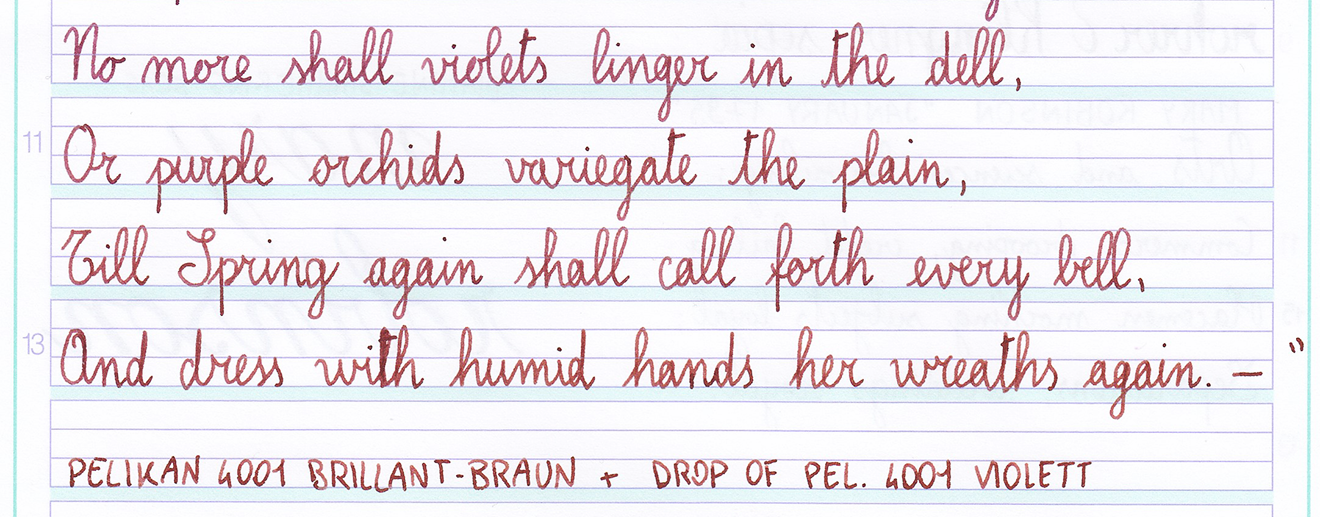 No more shall violets linger in the dell,
11
Or purple orchids variegate the plain,
Till Spring again shall call forth every bell,
13
And dress with humid hands her wreaths again. — "
PELIKAN 4001 BRILLANT-BRAUN + DROP OF PEL. 4001 VIOLETT